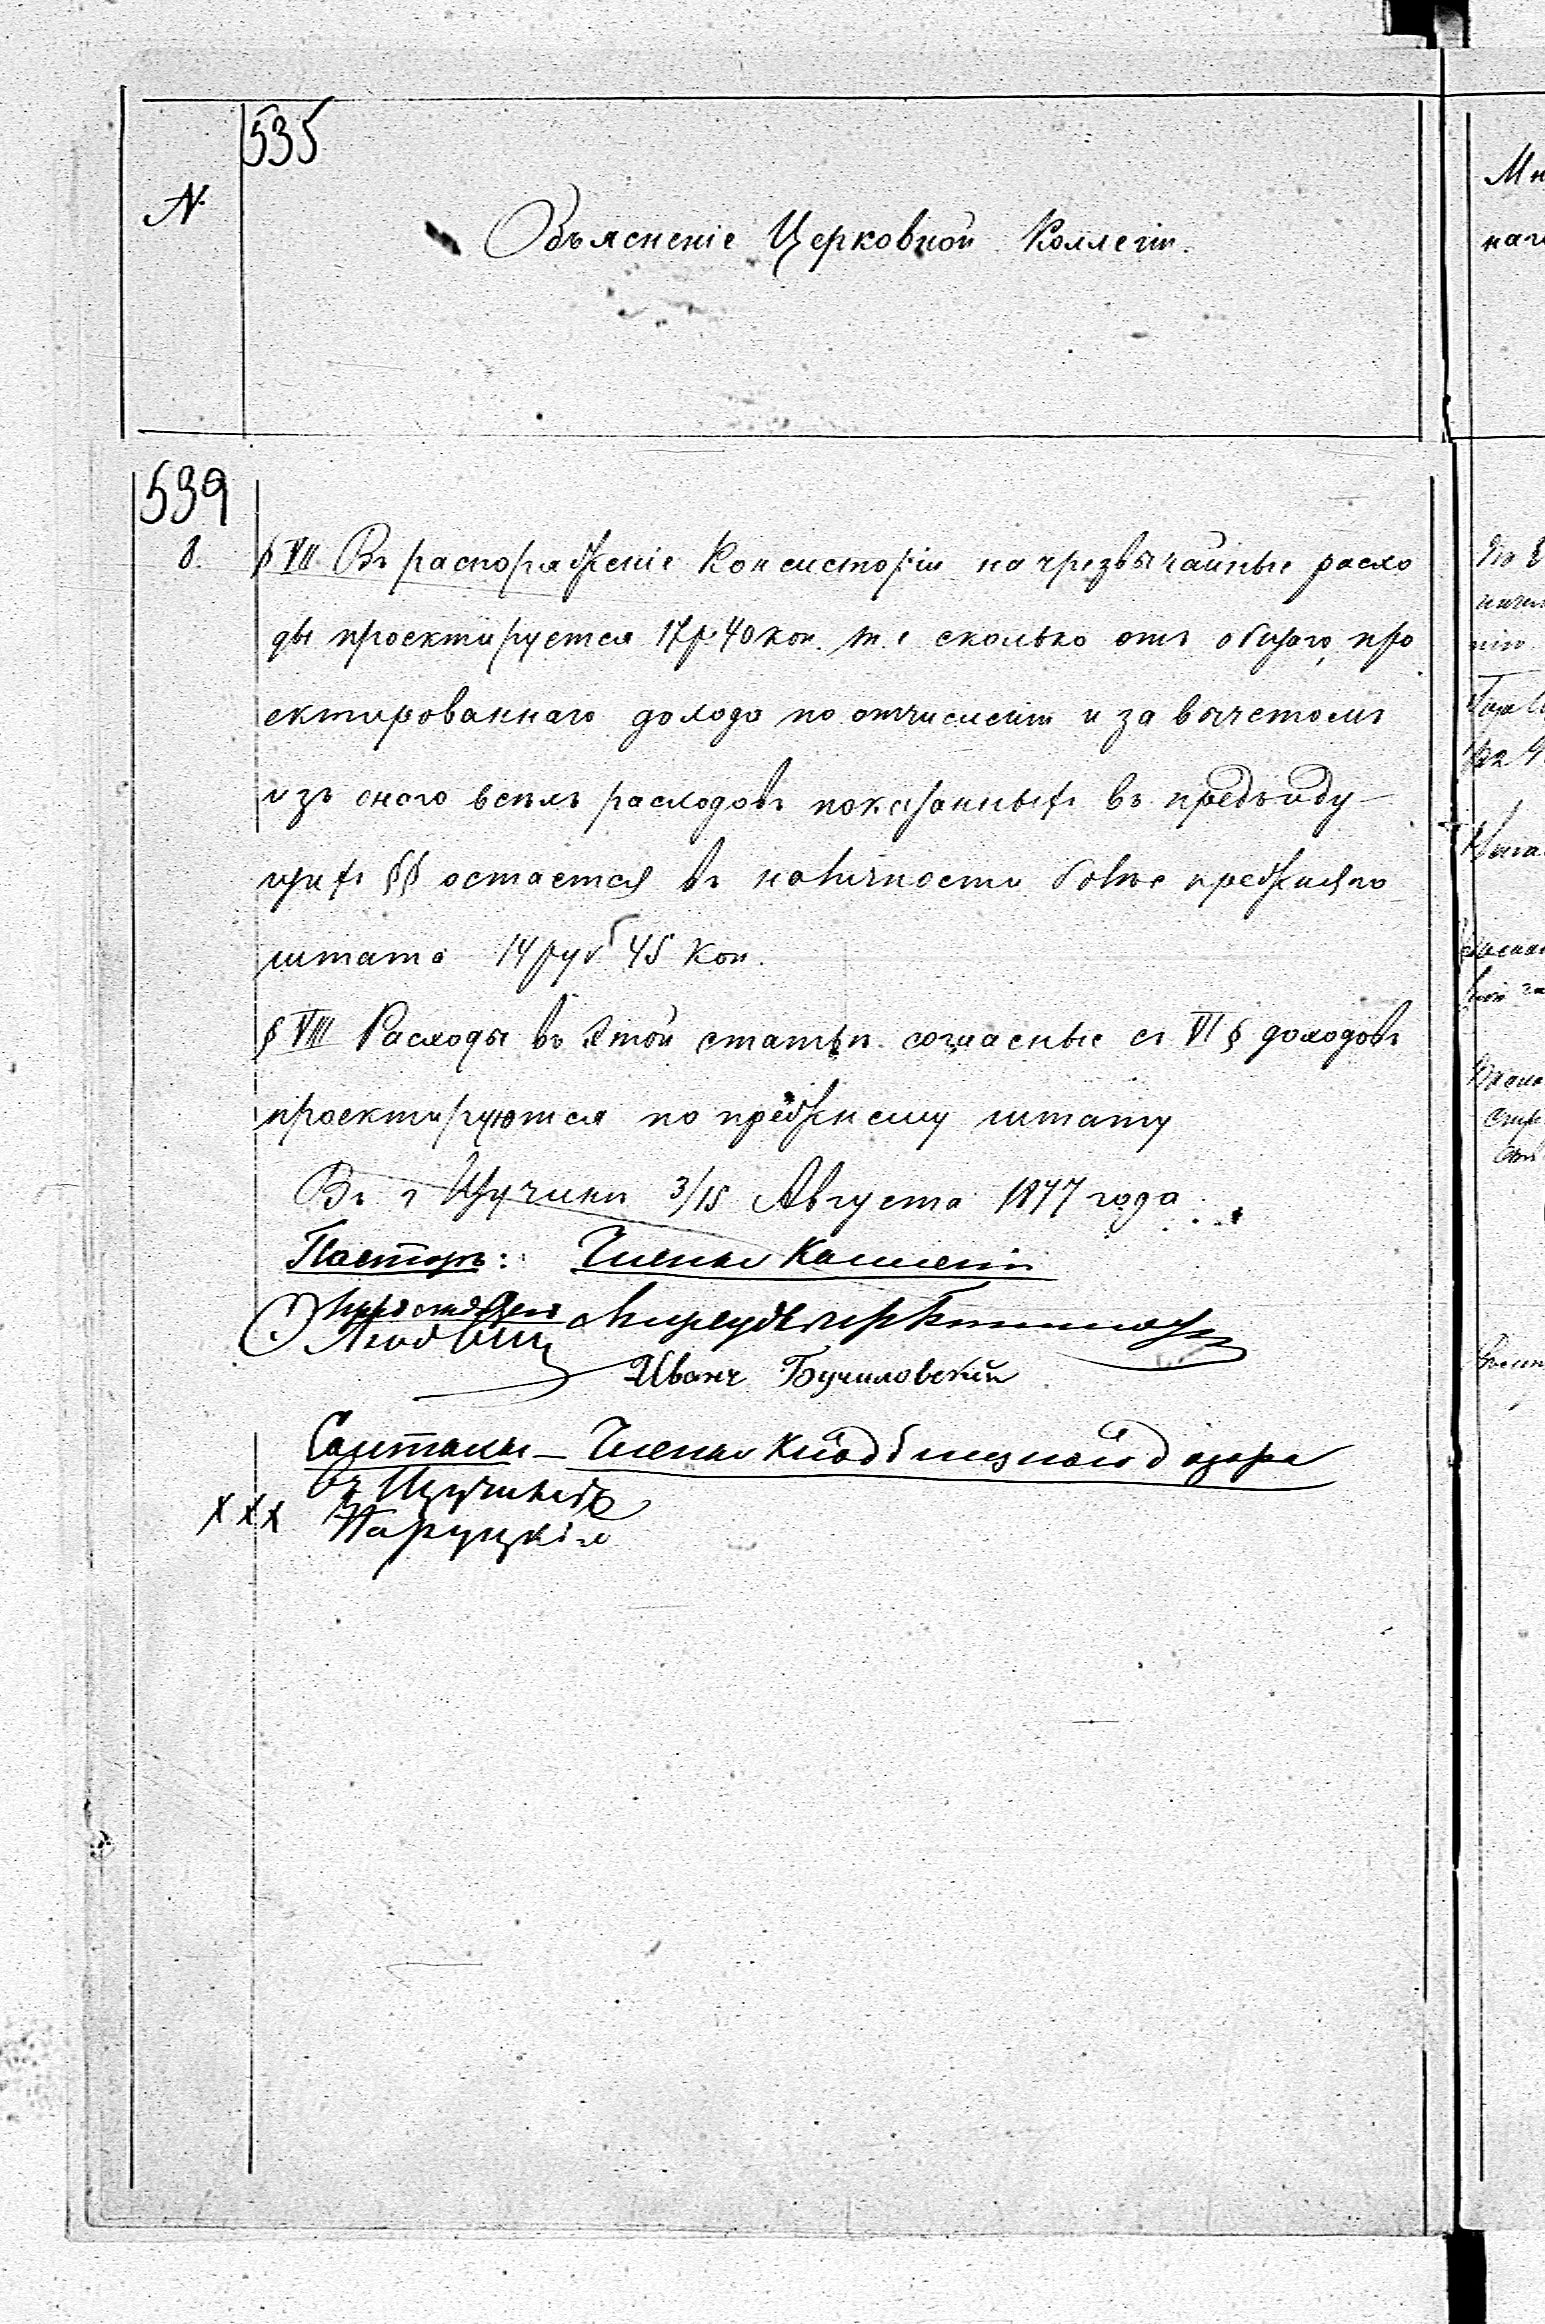 535
№
Объясненіе Церковной Коллегіи.
539
8.
§ VII Въ распоряженіе Консисторіи на чрезвычайные расхо
ды проектируется 17 р. 40 коп. т. е сколько отъ общаго, про
ектированнаго дохода по отчисленіи и за вычетомъ
изъ оного всѣхъ расходовъ показанныхъ въ предъиду-
щихъ §§ остается въ наличности болѣе прежняго
штата 14 руб 45 коп.
§ VIII Расходы въ этой статьѣ согласные съ VI § доходовъ
проектируются по прежнему штату
Въ г Щучинѣ 3/15 Августа 1877 года
Пасторъ: Члены Коллегіи
Иванъ Бучиловскій
Члены
въ Щучинѣ
XXX